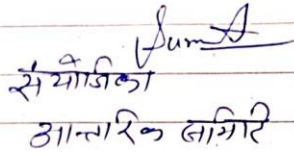 Sumit
संयोजिका
आन्तरिक समिति